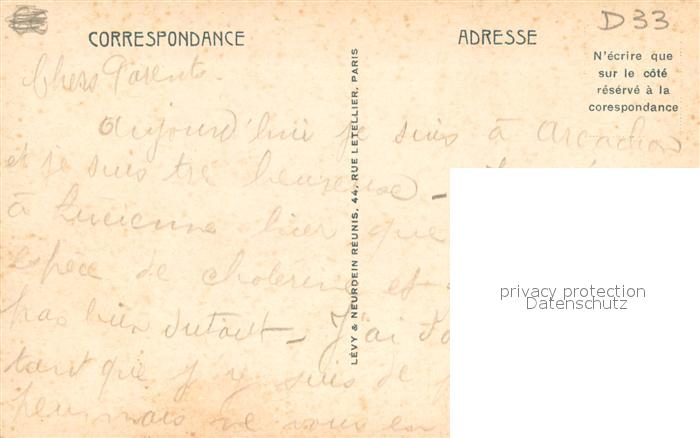 D33
CORRESPONDANCE
ADRESSE
N'écrire que
sur le côté
réservé à la
corespondance
LÉVY & NEURDEIN RÉUNIS, 44, RUE LETELLIER, PARIS
Chers Parents.
aujourd'hui je suis à Arcachon
et je suis tre heureuse –
à Lucienne hier que
espèce de cholerine et
pas bien du tout – J'ai
tant que j'y suis de
ne vous en
privacy protection
Datenschutz